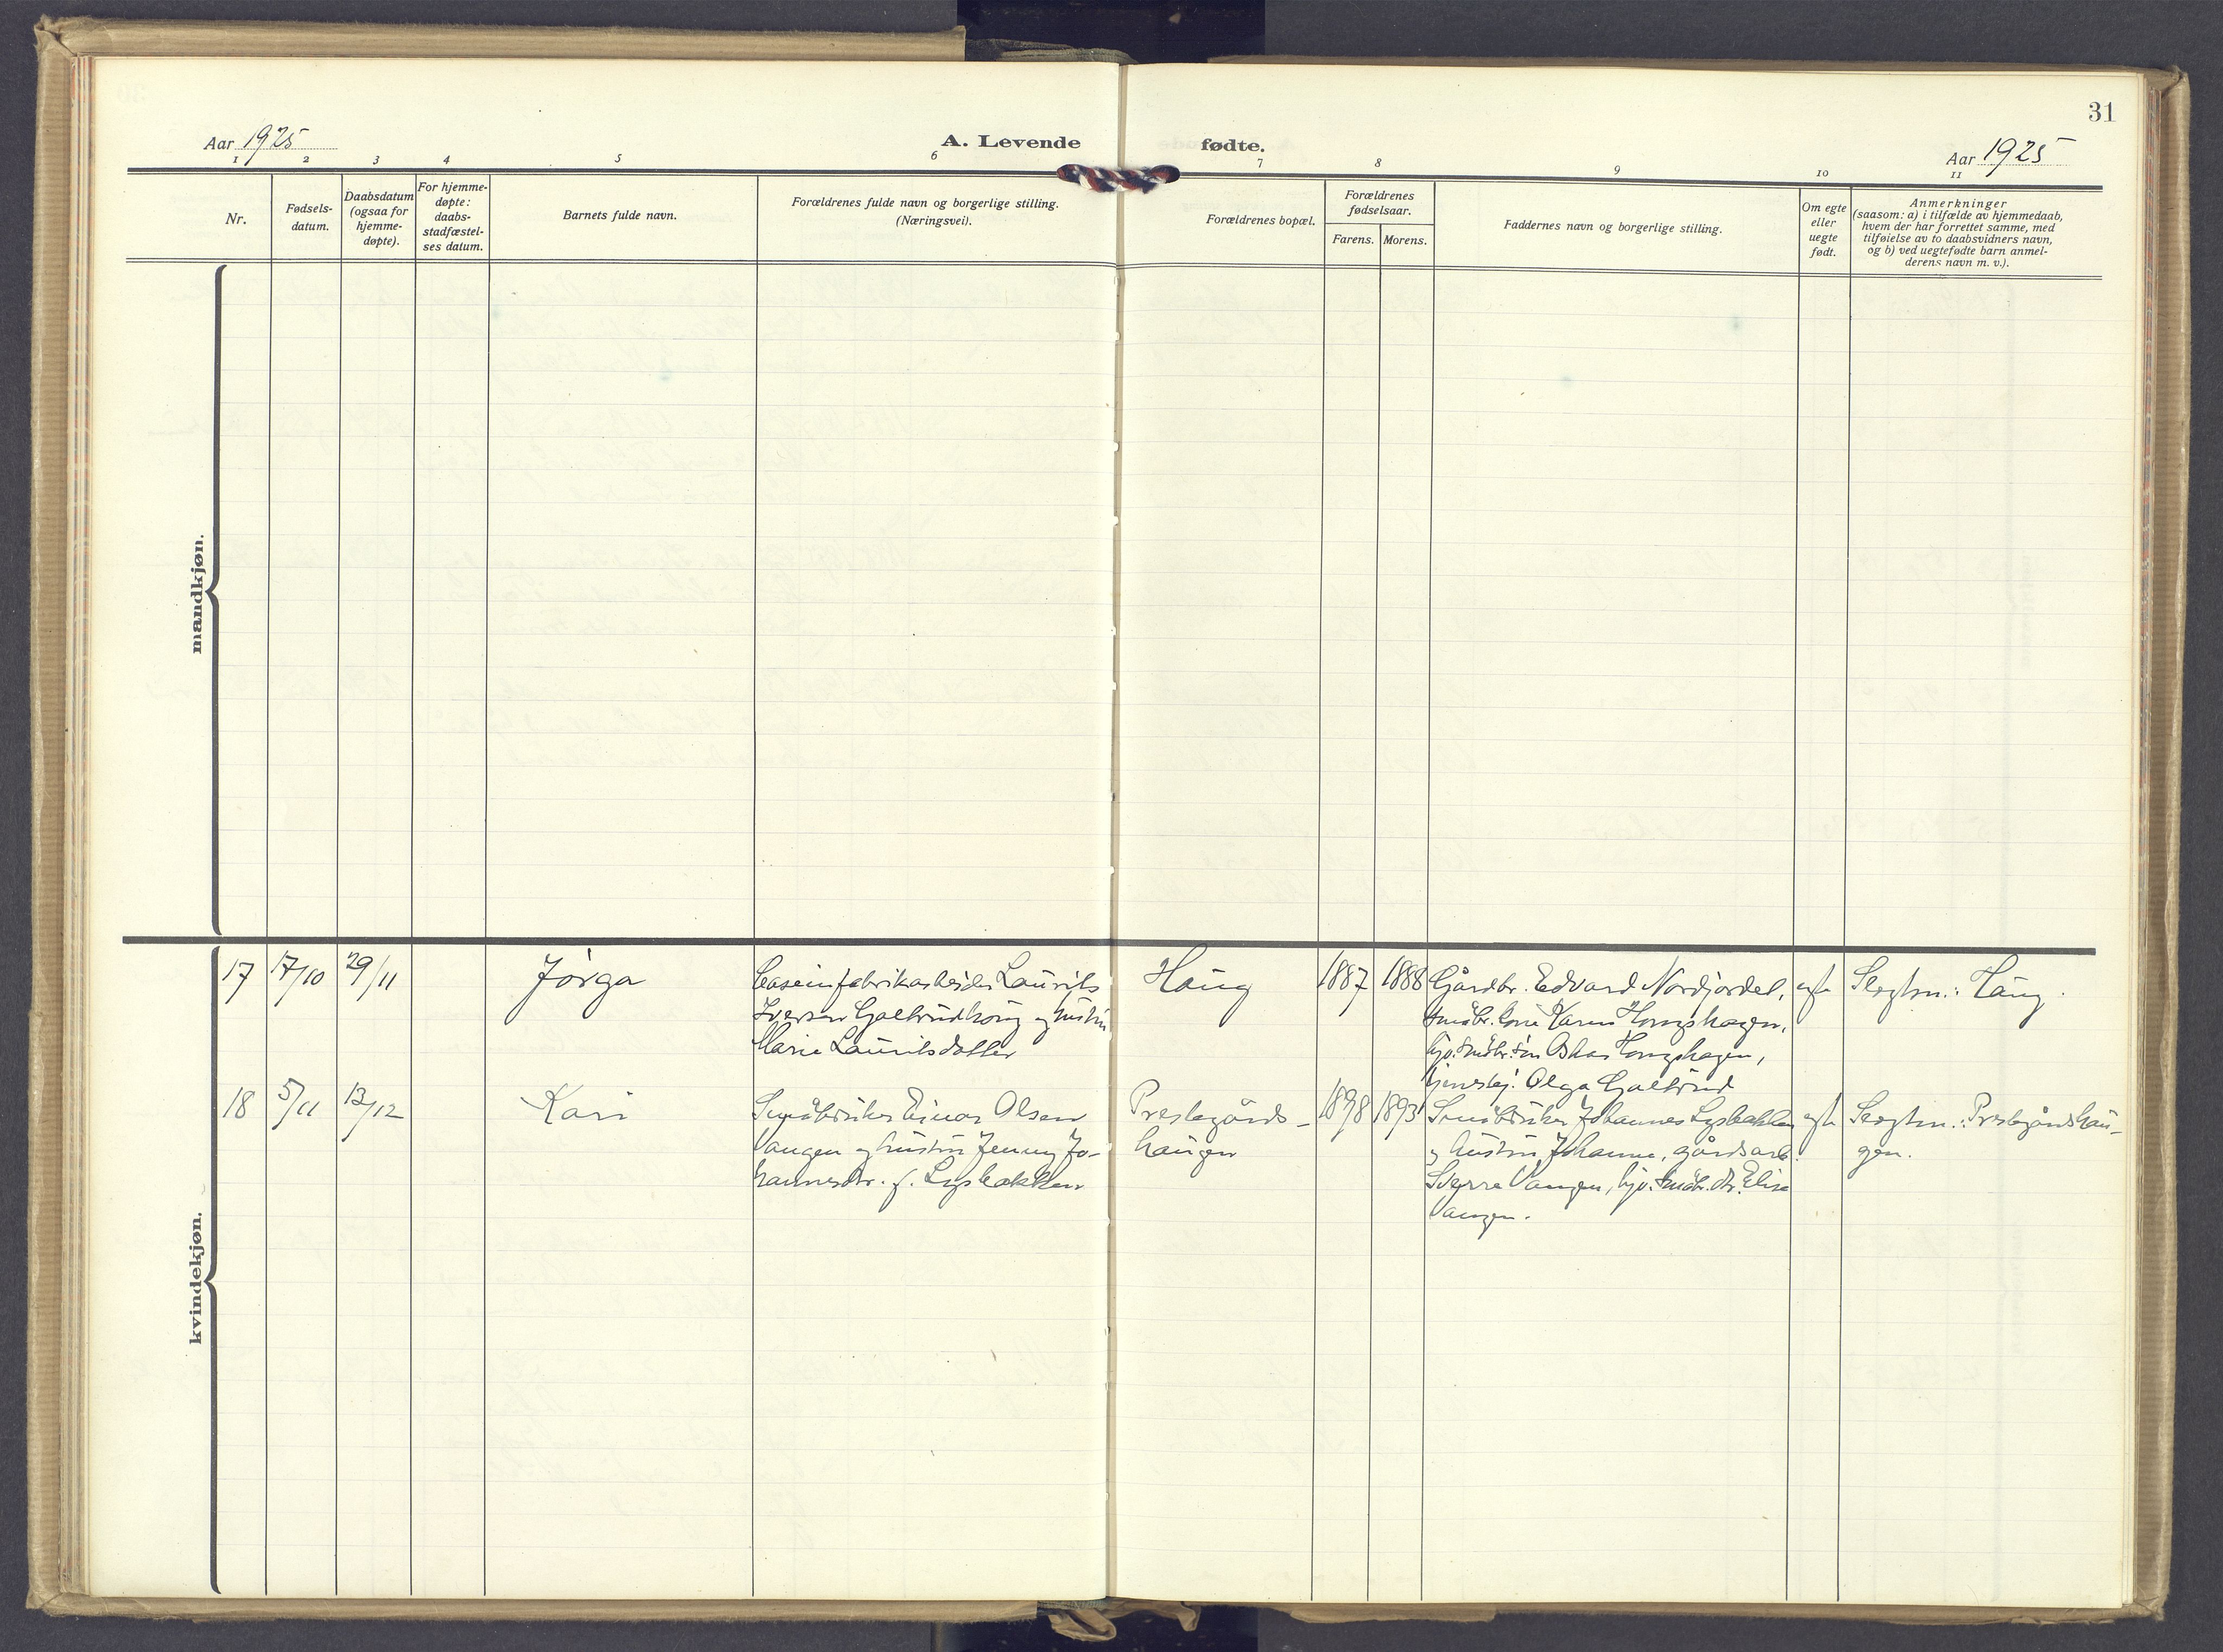 31
Aar 1925
A. Levende fødte.
Aar 1925
1 2 3 4 5 6 7 8 9 10 11
Nr.
Fødsels-
datum.
Daabsdatum
(ogsaa for
hjemme-
døpte).
For hjemme-
døpte:
daabs-
stadfæstel-
ses datum.
Barnets fulde navn.
Forældrenes fulde navn og borgerlige stilling.
(Næringsvei).
Forældrenes bopæl.
Forældrenes
fødselsaar.
Farens. Morens.
Faddernes navn og borgerlige stilling.
Om egte
eller
uegte
født.
Anmerkninger
(saasom: a) i tilfælde av hjemmedaab,
hvem der har forrettet samme, med
tilføielse av to daabsvidners navn,
og b) ved uegtefødte barn anmel-
derens navn m. v.).
mandkjøn.
kvindekjøn.
17 17/10 29/11 Jórga
Caseinfabrikarbeider Laurits
Iversen og hustru
Marie Lauritsdatter
Haug
1887 1888
Gårdbr. Edvard Nordjordet,
småbr. Karen
Olga
egte
Haug.
18 5/11 13/12 Kari
Småbruker Einar Olsen
Vangen og hustru Jenny Jo-
hannesdtr. f. Lysbakken
Prestegårds-
haugen
1898 1893
Småbruker Johannes Lysbakken
og hustru Johanne, gårdsarb.
Sverre Vangen, hjv. småbr. dtr. Elise
Vangen.
egte
Prestegårdshau-
gen.